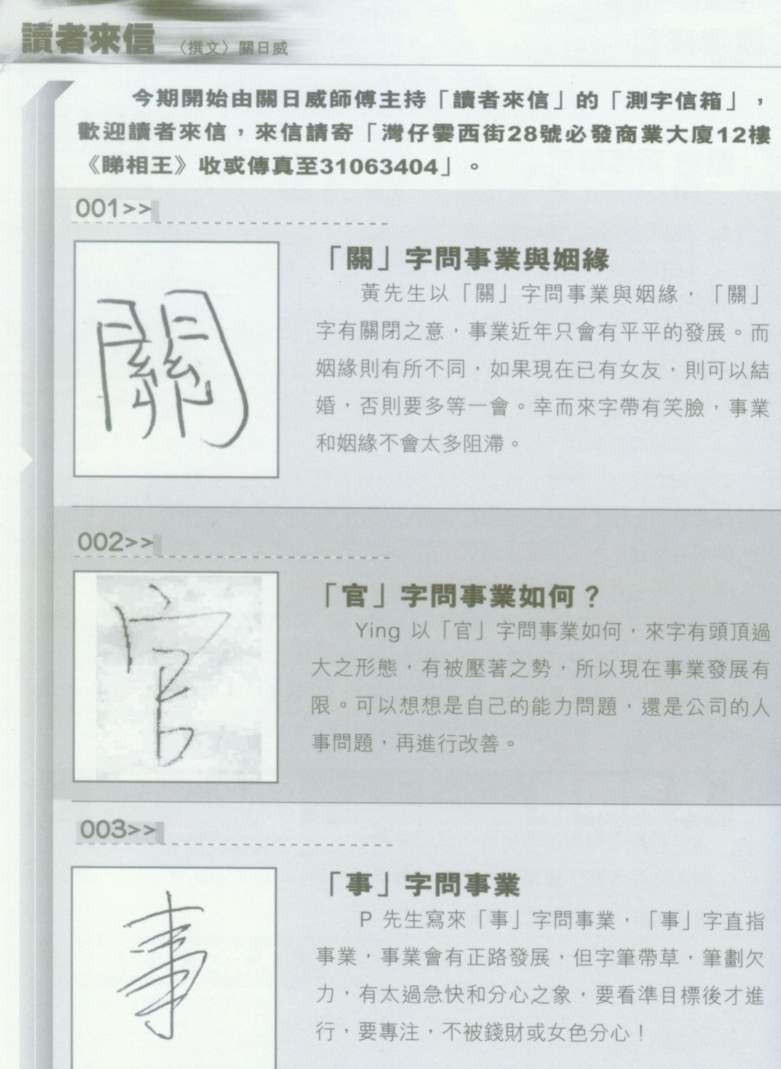 讀者來信 〈撰文〉關日威
今期開始由關日威師傅主持「讀者來信」的「測字信箱」，
歡迎讀者來信，來信請寄「灣仔霎西街28號必發商業大廈12樓
《睇相王》收或傳真至31063404」。
001>>
關
「關」字問事業與姻緣
黃先生以「關」字問事業與姻緣，「關」
字有關閉之意，事業近年只會有平平的發展。而
姻緣則有所不同，如果現在已有女友，則可以結
婚，否則要多等一會。幸而來字帶有笑臉，事業
和姻緣不會太多阻滯。
002>>
官
「官」字問事業如何？
Ying 以「官」字問事業如何，來字有頭頂過
大之形態，有被壓著之勢，所以現在事業發展有
限。可以想想是自己的能力問題，還是公司的人
事問題，再進行改善。
003>>
事
「事」字問事業
P 先生寫來「事」字問事業，「事」字直指
事業，事業會有正路發展，但字筆帶草，筆劃欠
力，有太過急快和分心之象，要看準目標後才進
行，要專注，不被錢財或女色分心！